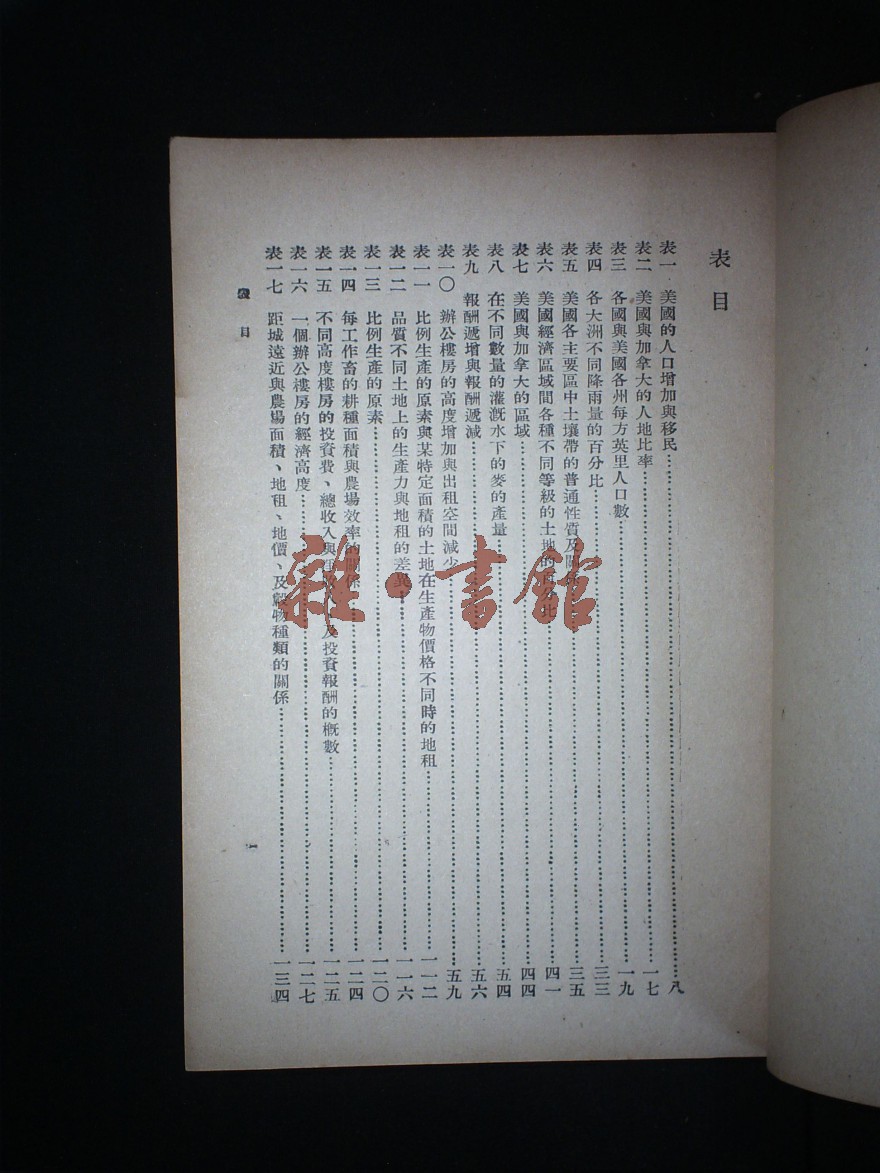 表目
表一 美國的人口增加與移民……八
表二 美國與加拿大的人地比率……一七
表三 各國與美國各州每方英里人口數……一九
表四 各大洲不同降雨量的百分比……三三
表五 美國各主要區中土壤帶的普通性質及關係……三五
表六 美國經濟區域間各種不同等級的土地的百分比……四一
表七 美國與加拿大的區域……四四
表八 在不同數量的灌漑水下的麥的產量……五四
表九 報酬遞增與報酬遞減……五六
表一〇 辦公樓房的高度增加與出租空間減少……五九
表一一 比例生產的原素與某特定面積的土地在生產物價格不同時的地租……一一二
表一二 品質不同土地上的生產力與地租的差異……一一六
表一三 比例生產的原素……一二〇
表一四 每工作畜的耕種面積與農場效率的關係……一二四
表一五 不同高度樓房的投資費、總收入與及投資報酬的概數……一二五
表一六 一個辦公樓房的經濟高度……一二七
表一七 距城遠近與農場面積、地租、地價、及穀物種類的關係……一三四
表目
一
雜·書館